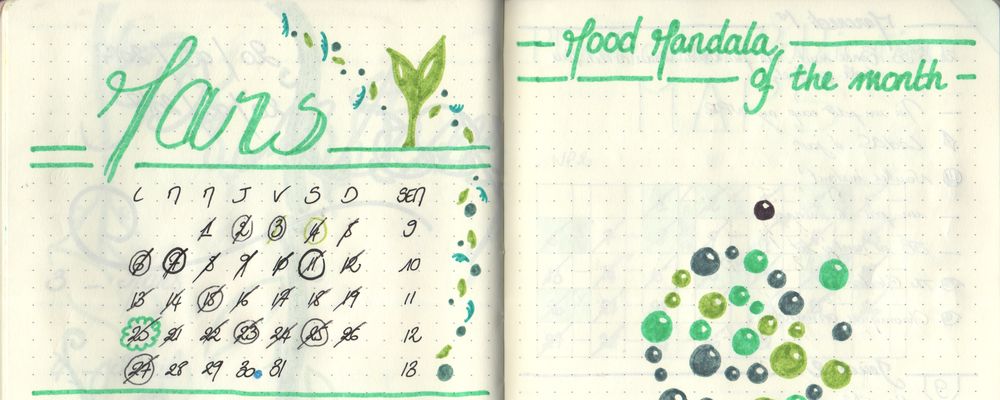 Mars
L M M J V S D SEM
1 2 3 4 5 9
6 7 8 9 10 11 12 10
13 14 15 16 17 18 19 11
20 21 22 23 24 25 26 12
27 28 29 30 31 13
Mood Mandala
of the month